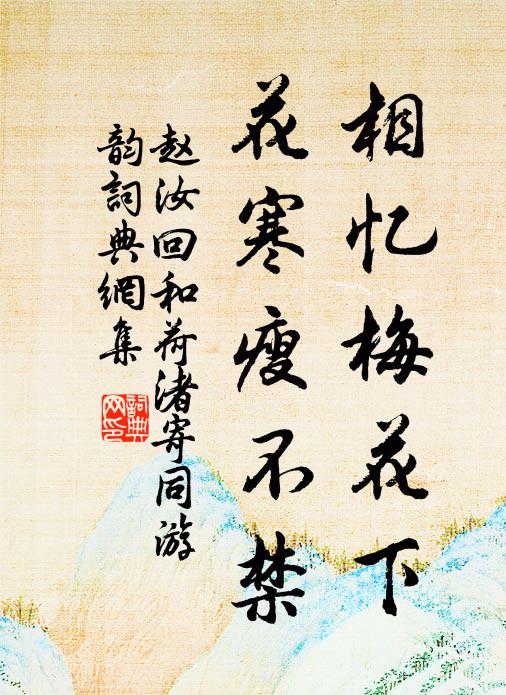 相忆梅花下
花寒瘦不禁
赵汝回和荷渚寄同游
韵詞典網集
詞典
网印